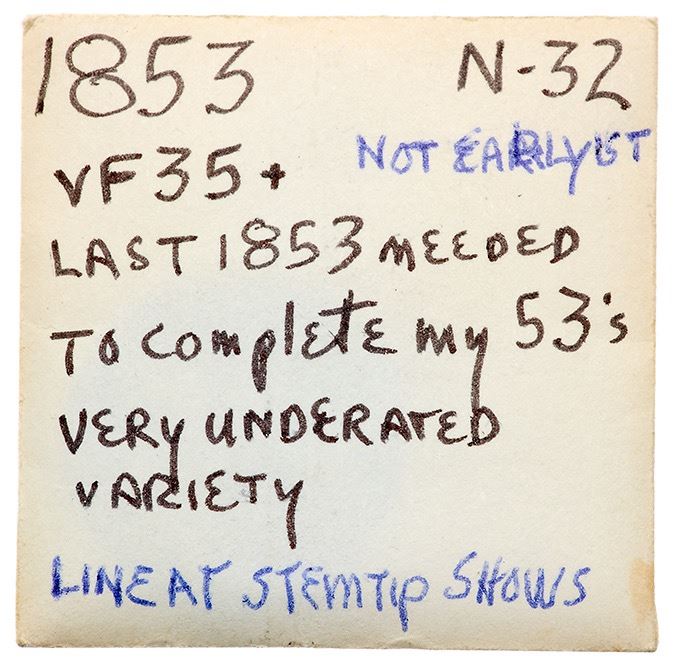 1853 N-32
VF35+ NOT EARLYEST
LAST 1853 NEEDED
TO COMPLETE MY 53's
VERY UNDERATED
VARIETY
LINE AT STEMTIP SHOWS